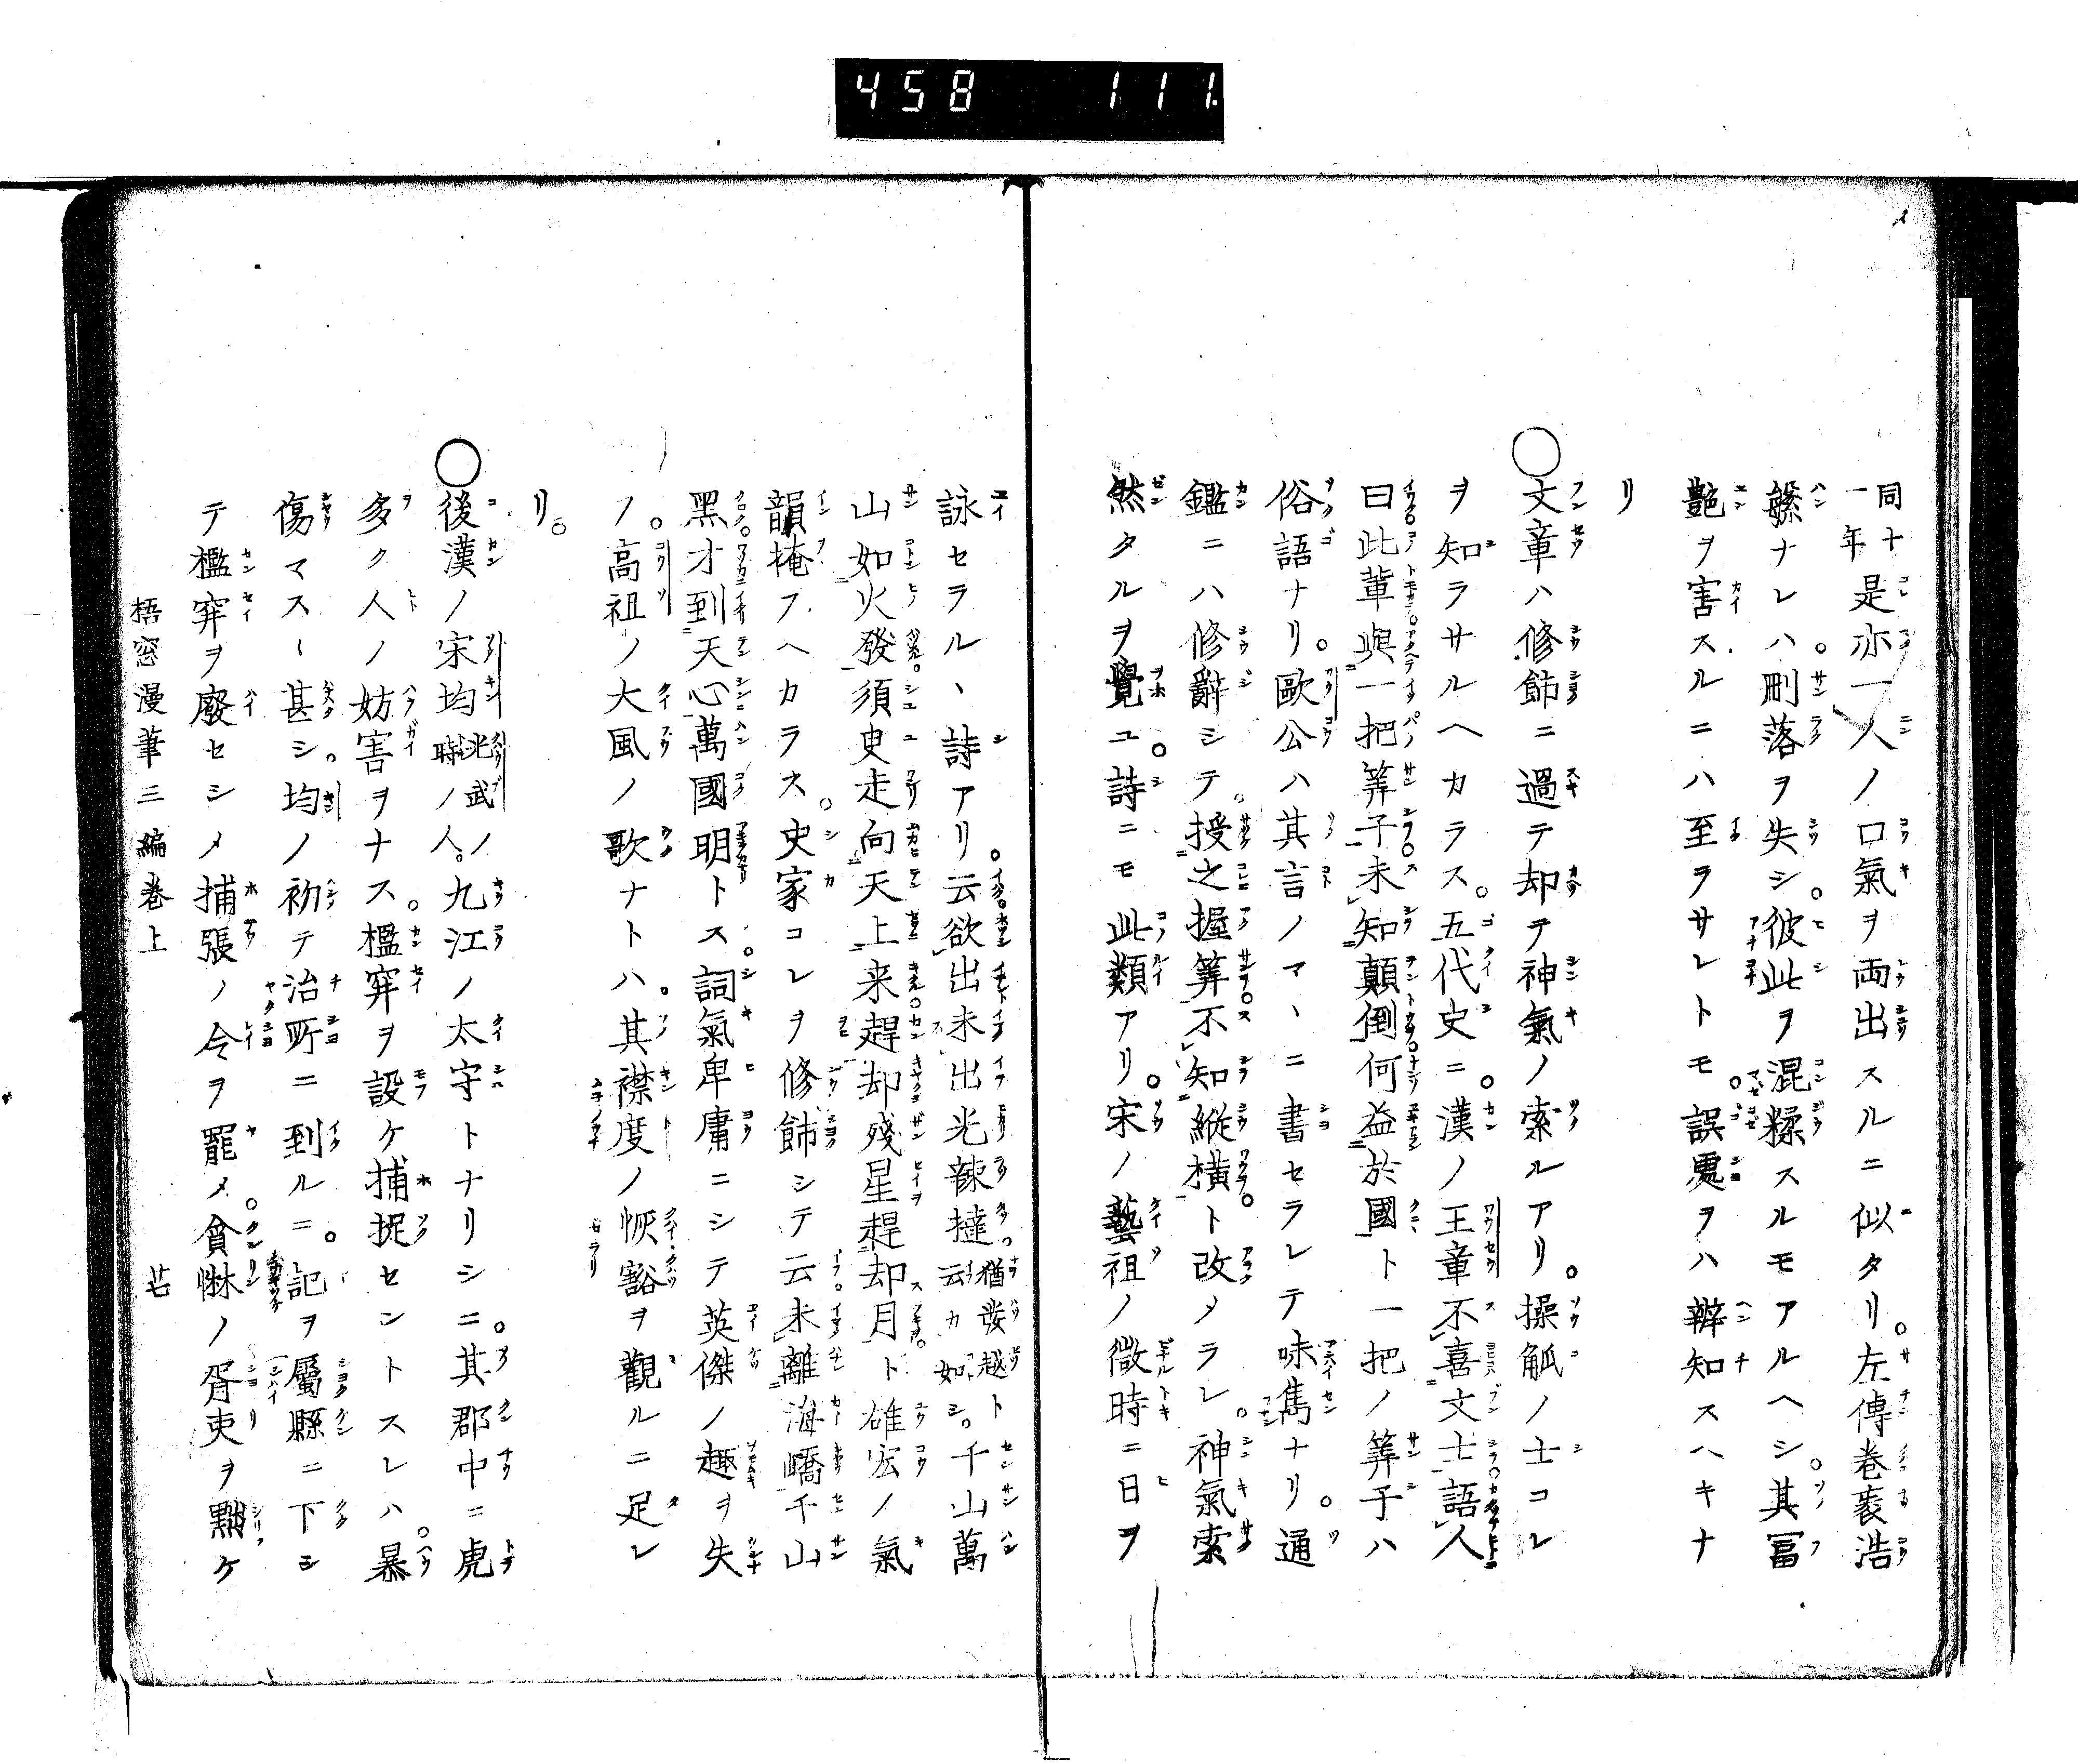 458 111.
同十一年是亦一人ノ口氣ヲ両出スルニ似タリ。左傳卷袠浩
緐ナレハ。刪落ヲ失シ。彼此ヲ混糅スルモアルヘシ。其冨
艶ヲ害スルニハ至ラサレトモ。誤處ヲハ辨知スヘキナ
リ
○文章ハ修飾ニ過テ却テ神氣ノ索ルアリ。操觚ノ士コレ
ヲ知ラサルヘカラス。五代史ニ。漢ノ王章不喜文士語人
曰此輩與一把筭子未知顛倒何益於國ト一把ノ筭子ハ
俗語ナリ。歐公ハ其言ノマヽニ書セラレテ味雋ナリ。通
鑑ニハ修辭シテ。授之握筭不知縱橫ト改メラレ。神氣索
然タルヲ覺ユ。詩ニモ此類アリ。宋ノ藝祖ノ微時ニ日ヲ
詠セラルヽ詩アリ。云欲出未出光辣撻云猶發越ト云カ如シ。千山萬
山如火發須臾走向天上来趕却殘星趕却月ト雄宏ノ氣
韻掩フヘカラス。史家コレヲ修飾シテ云未離海嶠千山
黑才到天心萬國明トス。詞氣卑庸ニシテ英傑ノ趣ヲ失
ノ。高祖ノ大風ノ歌ナトハ。其襟度ノ恢豁ヲ觀ルニ足レ
リ。
○後漢ノ宋均光武ノ時ノ人。九江ノ太守トナリシニ。其郡中ニ虎
多ク人ノ妨害ヲナス。檻穽ヲ設ケ捕捉セントスレハ。暴
傷マスヿ甚シ。均ノ初テ治所ニ到ルニ。記ヲ屬縣ニ下シ
テ檻穽ヲ廢セシメ捕張ノ令ヲ罷メ。貪惏ノ胥吏ヲ黜ケ
梧窓漫筆三編卷上 芒